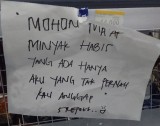 MOHON MAAF
MINYAK HABIS
YANG ADA HANYA
AKU YANG TAK PERNAH
KAU ANGGAP